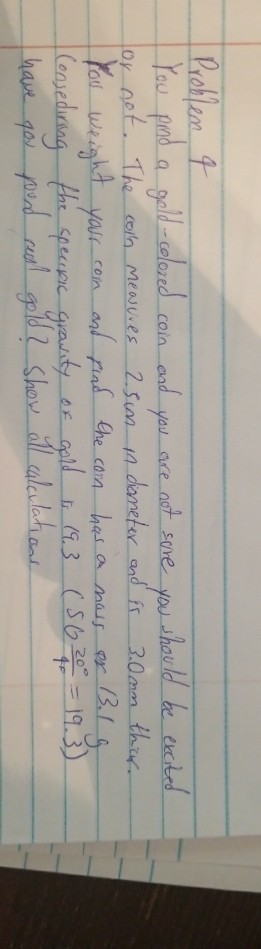 Problem 4
You find a gold-colored coin and you are not sure you should be excited
or not. The coin measures 2.5cm in diameter and is 3.0mm thick.
You weight your coin and find the coin has a mass of 13.1 g
Considering the specific gravity of gold is 19.3 (SG 20°/4° = 19.3)
have you found real gold? Show all calculations